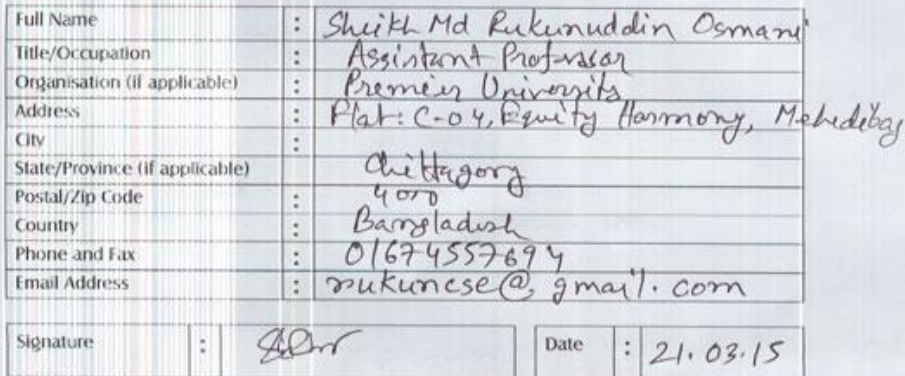 Full Name : Sheikh Md Rukunuddin Osmani
Title/Occupation : Assistant Professor
Organisation (if applicable) : Premier University
Address : Flat: C-04, Equity Harmony, Mehedibag
City :
State/Province (if applicable) Chittagong
Postal/Zip Code : 4000
Country : Bangladesh
Phone and Fax : 01674557694
Email Address : rukuncse@gmail.com
Signature : Date : 21.03.15